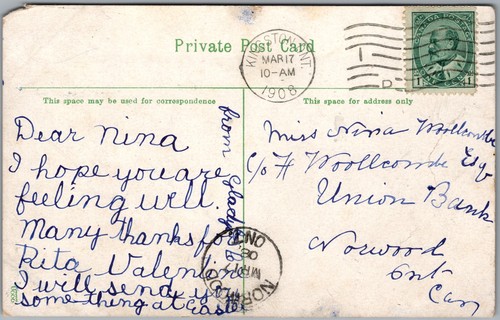 Private Post Card
KINGSTON, ONT.
MAR 17
10-AM
1908
CANADA POSTAGE
1 1
This space may be used for correspondence
This space for address only
Dear Nina
I hope you are
feeling well.
Many thanks for
Rita Valentine
I will send you
something at Easter
from Gladys B
Miss Nina Woollcombe
c/o H Woollcombe Esq
Union Bank
Norwood
Ont
Can
NORWOOD
ONT
08